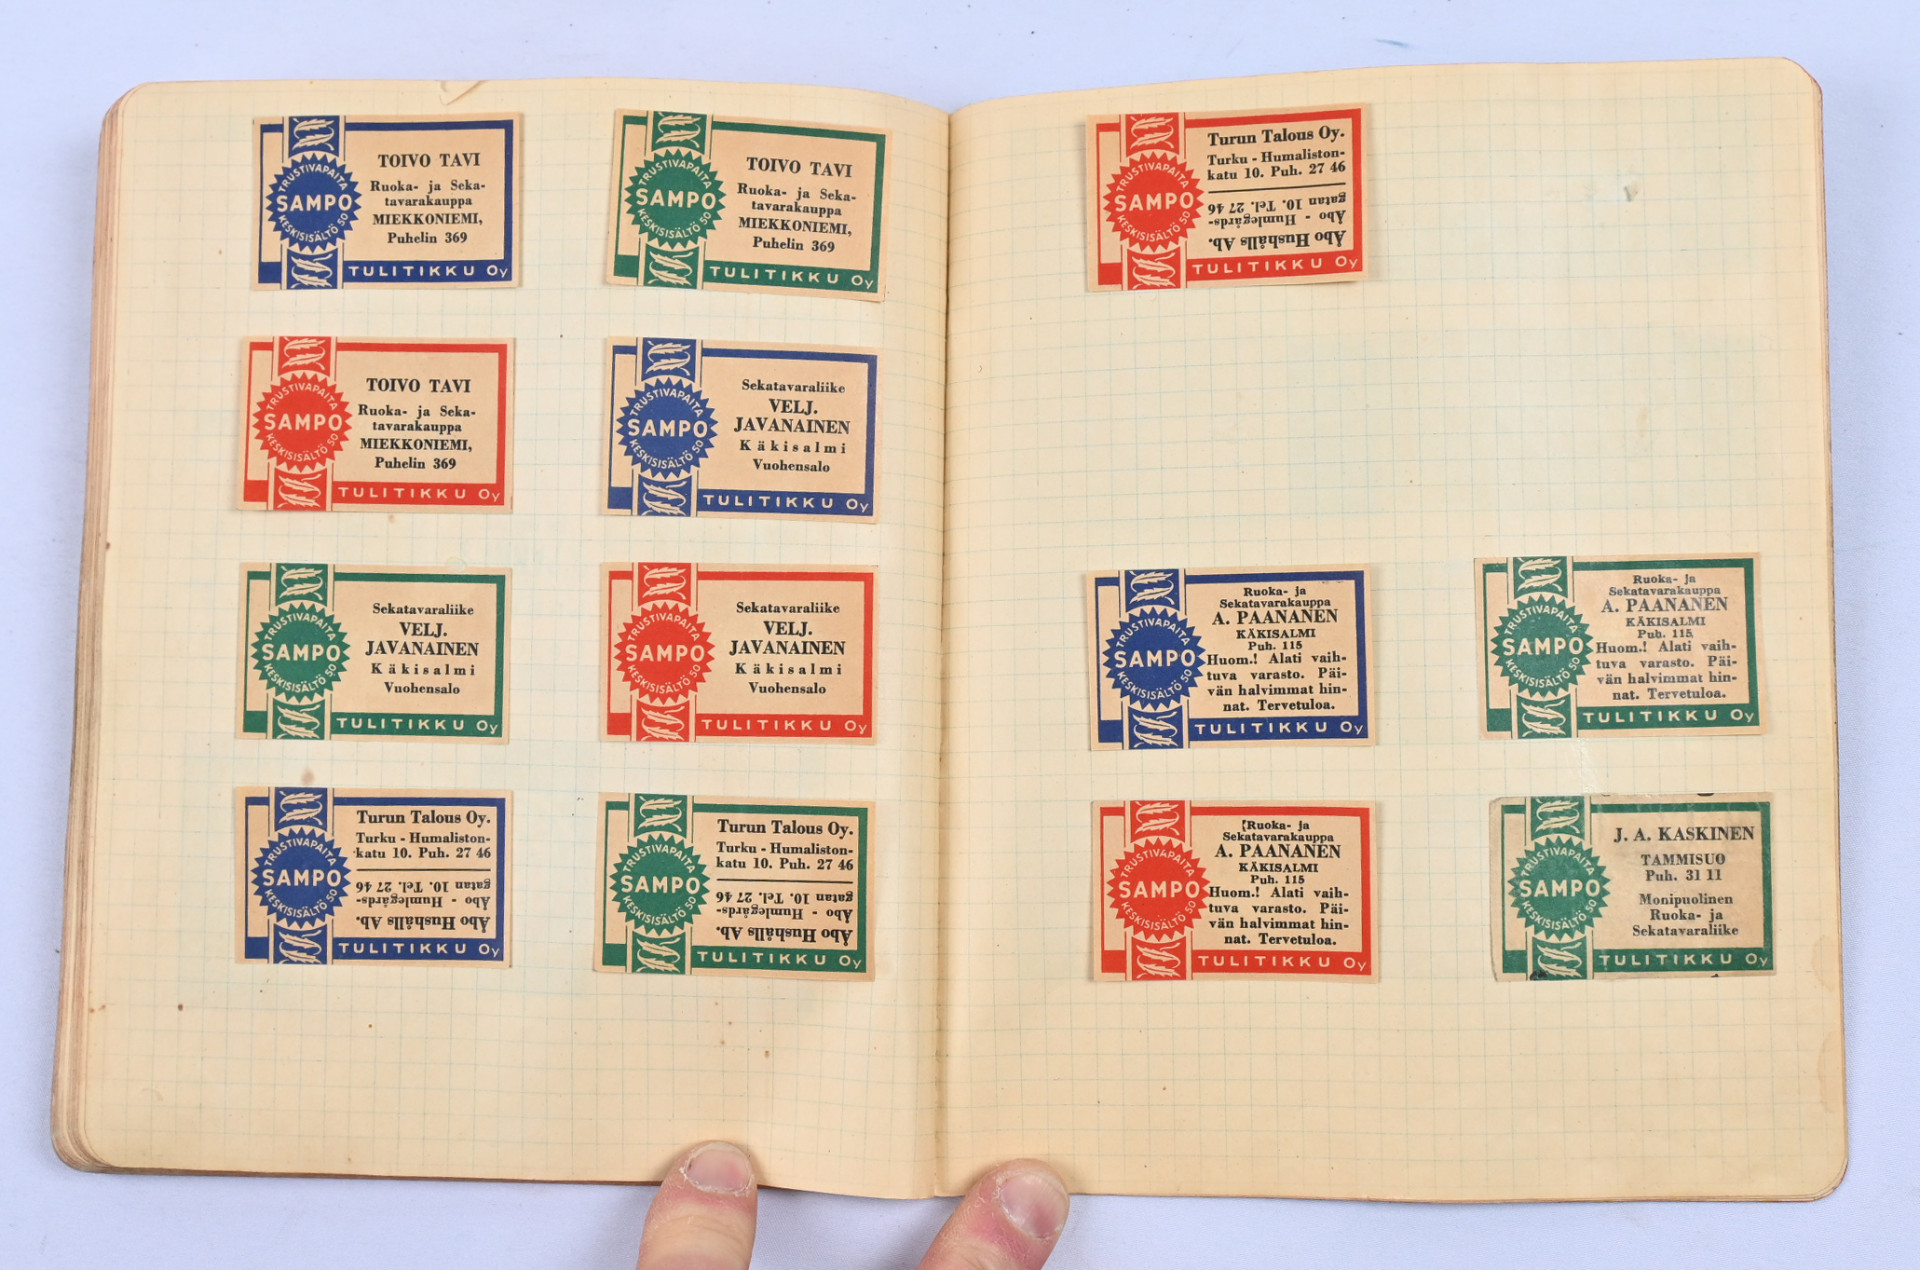 TRUSTIVAPAITA
SAMPO
KESKISISÄLTÖ 50
TOIVO TAVI
Ruoka- ja Seka-
tavarakauppa
MIEKKONIEMI,
Puhelin 369
TULITIKKU Oy
TRUSTIVAPAITA
SAMPO
KESKISISÄLTÖ 50
TOIVO TAVI
Ruoka- ja Seka-
tavarakauppa
MIEKKONIEMI,
Puhelin 369
TULITIKKU Oy
TRUSTIVAPAITA
SAMPO
KESKISISÄLTÖ 50
TOIVO TAVI
Ruoka- ja Seka-
tavarakauppa
MIEKKONIEMI,
Puhelin 369
TULITIKKU Oy
TRUSTIVAPAITA
SAMPO
KESKISISÄLTÖ 50
Sekatavaraliike
VELJ.
JAVANAINEN
Käkisalmi
Vuohensalo
TULITIKKU Oy
TRUSTIVAPAITA
SAMPO
KESKISISÄLTÖ 50
Sekatavaraliike
VELJ.
JAVANAINEN
Käkisalmi
Vuohensalo
TULITIKKU Oy
TRUSTIVAPAITA
SAMPO
KESKISISÄLTÖ 50
Sekatavaraliike
VELJ.
JAVANAINEN
Käkisalmi
Vuohensalo
TULITIKKU Oy
TRUSTIVAPAITA
SAMPO
KESKISISÄLTÖ 50
Turun Talous Oy.
Turku - Humaliston-
katu 10. Puh. 27 46
Åbo Hushålls Ab.
Åbo - Humlegårds-
gatan 10. Tel. 27 46
TULITIKKU Oy
TRUSTIVAPAITA
SAMPO
KESKISISÄLTÖ 50
Turun Talous Oy.
Turku - Humaliston-
katu 10. Puh. 27 46
Åbo Hushålls Ab.
Åbo - Humlegårds-
gatan 10. Tel. 27 46
TULITIKKU Oy
TRUSTIVAPAITA
SAMPO
KESKISISÄLTÖ 50
Turun Talous Oy.
Turku - Humaliston-
katu 10. Puh. 27 46
Åbo Hushålls Ab.
Åbo - Humlegårds-
gatan 10. Tel. 27 46
TULITIKKU Oy
TRUSTIVAPAITA
SAMPO
KESKISISÄLTÖ 50
Ruoka- ja
Sekatavarakauppa
A. PAANANEN
KÄKISALMI
Puh. 115
Huom.! Alati vaih-
tuva varasto. Päi-
vän halvimmat hin-
nat. Tervetuloa.
TULITIKKU Oy
TRUSTIVAPAITA
SAMPO
KESKISISÄLTÖ 50
Ruoka- ja
Sekatavarakauppa
A. PAANANEN
KÄKISALMI
Puh. 115
Huom.! Alati vaih-
tuva varasto. Päi-
vän halvimmat hin-
nat. Tervetuloa.
TULITIKKU Oy
TRUSTIVAPAITA
SAMPO
KESKISISÄLTÖ 50
Ruoka- ja
Sekatavarakauppa
A. PAANANEN
KÄKISALMI
Puh. 115
Huom.! Alati vaih-
tuva varasto. Päi-
vän halvimmat hin-
nat. Tervetuloa.
TULITIKKU Oy
TRUSTIVAPAITA
SAMPO
KESKISISÄLTÖ 50
J. A. KASKINEN
TAMMISUO
Puh. 31 11
Monipuolinen
Ruoka- ja
Sekatavaraliike
TULITIKKU Oy